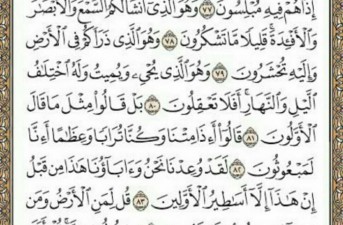 إِذَا هُمْ فِيهِ مُبْلِسُونَ ٧٧ وَهُوَ ٱلَّذِىٓ أَنشَأَ لَكُمُ ٱلسَّمْعَ وَٱلْأَبْصَٰرَ
وَٱلْأَفْـِٔدَةَ قَلِيلًا مَّا تَشْكُرُونَ ٧٨ وَهُوَ ٱلَّذِى ذَرَأَكُمْ فِى ٱلْأَرْضِ
وَإِلَيْهِ تُحْشَرُونَ ٧٩ وَهُوَ ٱلَّذِى يُحْىِۦ وَيُمِيتُ وَلَهُ ٱخْتِلَٰفُ
ٱلَّيْلِ وَٱلنَّهَارِ أَفَلَا تَعْقِلُونَ ٨٠ بَلْ قَالُوا۟ مِثْلَ مَا قَالَ
ٱلْأَوَّلُونَ ٨١ قَالُوٓا۟ أَءِذَا مِتْنَا وَكُنَّا تُرَابًا وَعِظَٰمًا أَءِنَّا
لَمَبْعُوثُونَ ٨٢ لَقَدْ وُعِدْنَا نَحْنُ وَءَابَآؤُنَا هَٰذَا مِن قَبْلُ
إِنْ هَٰذَآ إِلَّآ أَسَٰطِيرُ ٱلْأَوَّلِينَ ٨٣ قُل لِّمَنِ ٱلْأَرْضُ وَمَن